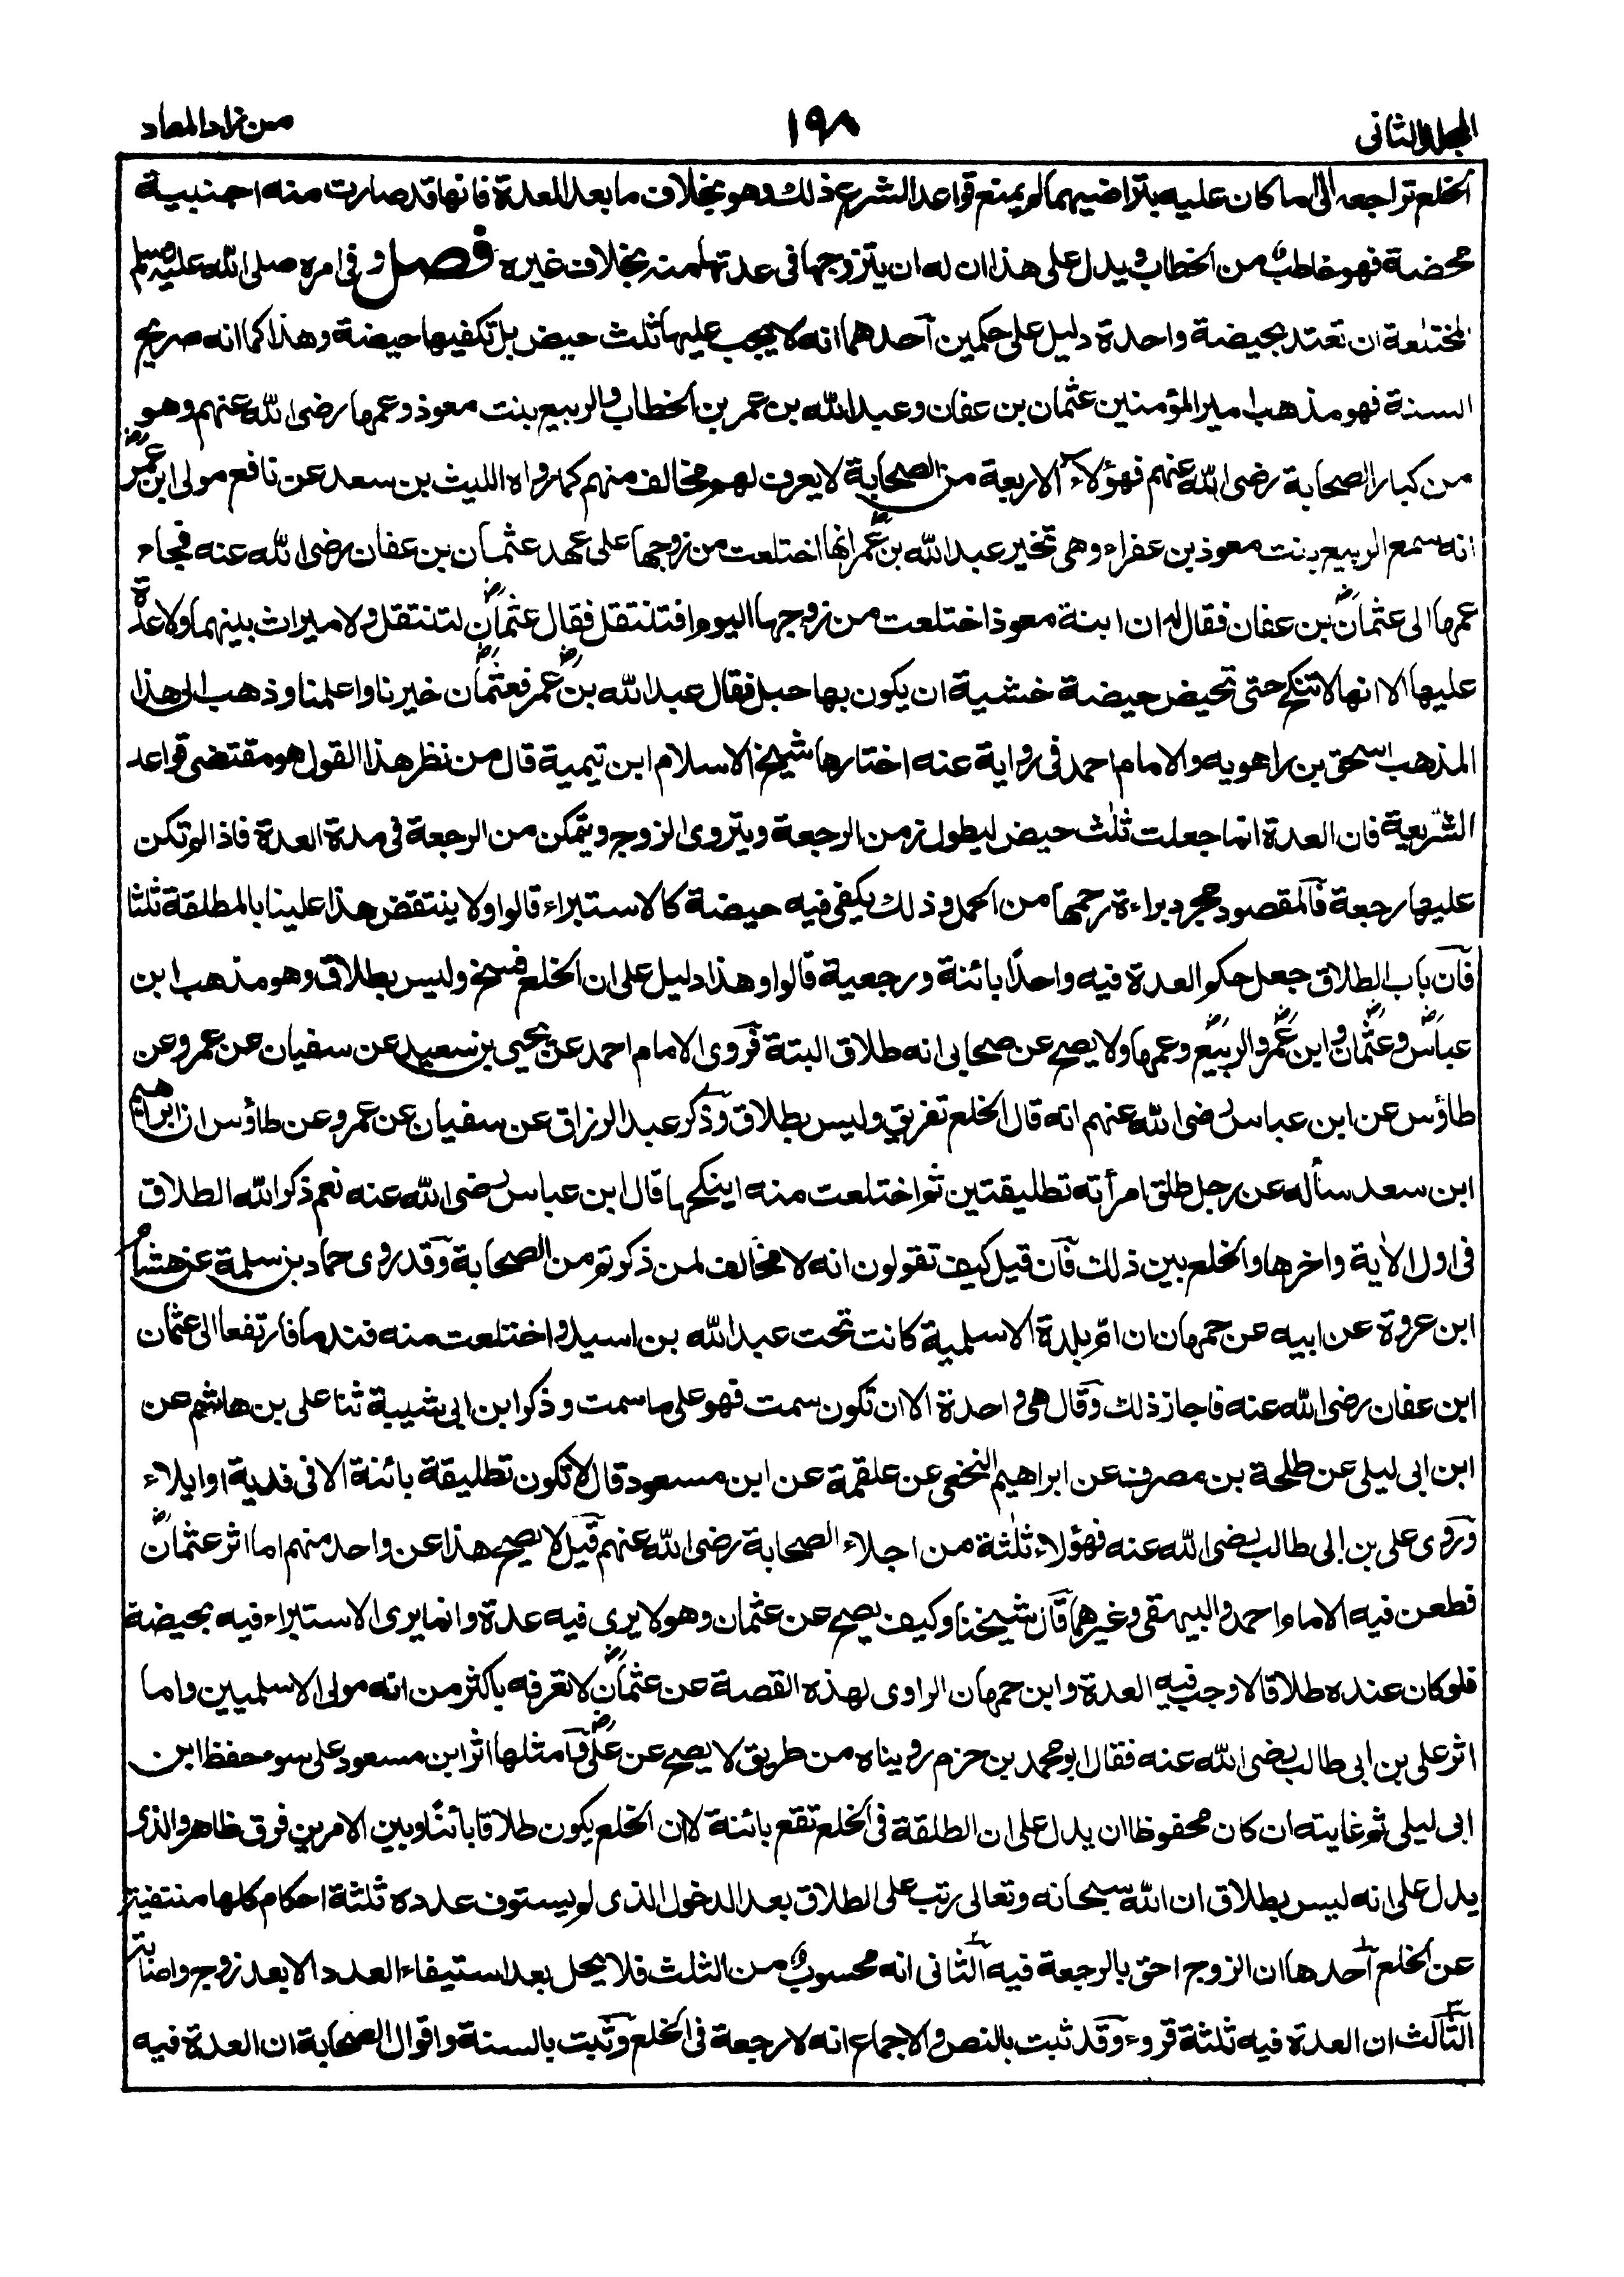 المجلد الثانى
١٩٨
من زاد المعاد
الخلع تراجعه الى ما كان عليه بتراضيهما لم يمنع قواعد الشرع ذلك وهو بخلاف ما بعد العدة فانها قد صارت منه اجنبية
محضة فهو خاطب من الخطاب ويدل على هذا ان له ان يتزوجها فى عدتها منه بخلاف غيره فصل وفى امره صلى الله عليه وسلم
المختلعة ان تعتد بحيضة واحدة دليل على حكمين آحدهما انه لا يجب عليها ثلث حيض بل تكفيها حيضة وهذا كما انه صريح
السنة فهو مذهب امير المؤمنين عثمان بن عفان وعبد الله بن عمر بن الخطاب والربيع بنت معوذ وعمها رضى الله عنهم وهو
من كبار الصحابة رضى الله عنهم فهؤلاء الاربعة من الصحابة لا يعرف لهم مخالف منهم كما رواه الليث بن سعد عن نافع مولى ابن عمرؓ
انه سمع الربيع بنت معوذ بن عفراء وهى تخبر عبد الله بن عمرؓ انها اختلعت من زوجها على عهد عثمان بن عفان رضى الله عنه فجاء
عمها الى عثمانؓ بن عفان فقال له ان ابنة معوذ اختلعت من زوجها اليوم افتنتقل فقال عثمانؓ لتنتقل ولا ميراث بينهما ولا عدة
عليها الا انها لا تنكح حتى تحيض حيضة خشية ان يكون بها حبل فقال عبد الله بن عمرؓ فعثمانؓ خيرنا واعلمنا وذهب الى هذا
المذهب اسحق بن راهويه والامام احمد فى رواية عنه اختارها شيخ الاسلام ابن تيمية قال من نظر هذا القول هو مقتضى قواعد
الشريعة فان العدة انما جعلت ثلث حيض ليطول زمن الرجعة ويتروى الزوج ويتمكن من الرجعة فى مدة العدة فاذا لم تكن
عليها رجعة فآلمقصود مجرد براءة رحمها من الحمل وذلك يكفى فيه حيضة كالاستبراء قالوا ولا ينتقض هذا علينا بالمطلقة ثلثا
فآن باب الطلاق جعل حكم العدة فيه واحدًا بائنة ورجعية قالوا وهذا دليل على ان الخلع فسخ وليس بطلاق وهو مذهب ابن
عباسؓ وعثمانؓ وابن عمرؓ والربيعؓ وعمها ولا يصح عن صحابى انه طلاق البتة فروى الامام احمد عن يحيى بن سعيد عن سفيان عن عمرو عن
طاؤس عن ابن عباس رضى الله عنهم انه قال الخلع تفريق وليس بطلاق وذكر عبد الرزاق عن سفيان عن عمرو عن طاؤس ان ابراهيم
ابن سعد سأله عن رجل طلق امرأته تطليقتين ثم اختلعت منه اينكحها قال ابن عباس رضى الله عنه نعم ذكر الله الطلاق
فى اول الاٰية واخرها والخلع بين ذلك فآن قيل كيف تقولون انه لا مخالف لمن ذكرتم من الصحابة وقد روى حماد بن سلمة عن هشام
ابن عروة عن ابيه عن جمهان ان ام بلدة الاسلمية كانت تحت عبد الله بن اسيد واختلعت منه فندما فارتفعا الى عثمان
ابن عفان رضى الله عنه فاجاز ذلك وقال هى واحدة الا ان تكون سمت فهو على ما سمت وذكر ابن ابى شيبة ثنا على بن هاشم عن
ابن ابى ليلى عن طلحة بن مصرف عن ابراهيم النخعى عن علقمة عن ابن مسعود قال لا تكون تطليقة بائنة الا فى فدية او ايلاء
وروى على بن ابى طالب رضى الله عنه فهؤلاء ثلٰثة من اجلاء الصحابة رضى الله عنهم قيل لا يصح هذا عن واحد منهم اما اثر عثمانؓ
فطعن فيه الامام احمد والبيهقى وغيرهما قال شيخنا وكيف يصح عن عثمان وهو لا يرى فيه عدة وانما يرى الاستبراء فيه بحيضة
فلو كان عنده طلاقا لاوجب فيه العدة وابن جمهان الراوى لهذه القصة عن عثمانؓ لا نعرفه باكثر من انه مولى الاسلميين واما
اثر على بن ابى طالب رضى الله عنه فقال ابو محمد بن حزم رويناه من طريق لا يصح عن علىؓ وآمثلها اثر ابن مسعود على سوء حفظ ابن
ابى ليلى ثم غايته ان كان محفوظا ان يدل على ان الطلقة فى الخلع تقع بائنة لان الخلع يكون طلاقا بائنًا وبين الامرين فرق ظاهر والذى
يدل على انه ليس بطلاق ان الله سبحانه وتعالى رتب على الطلاق بعد الدخول الذى لم يستوف عدده ثلثة احكام كلها منتفية
عن الخلع آحدها ان الزوج احق بالرجعة فيه الثانى انه محسوب من الثلث فلا يحل بعد استيفاء العدد الا بعد زوج واصابة
الثالث ان العدة فيه ثلثة قروء وقد ثبت بالنص والاجماع انه لا رجعة فى الخلع وثبت بالسنة واقوال الصحابة ان العدة فيه